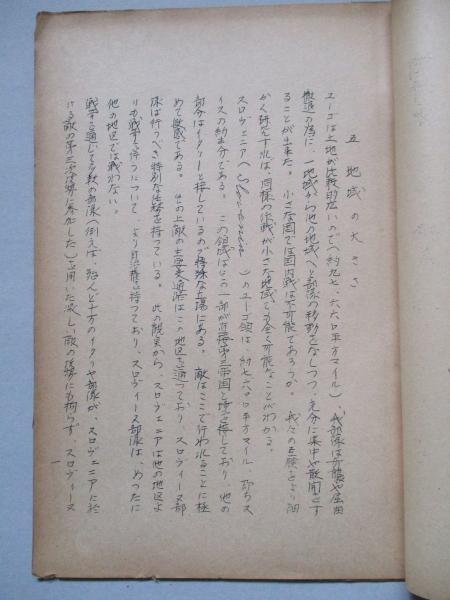 五 地域の大きさ
ユーゴは土地が比較的広いので(約九七、六六〇平方マイル)、我部隊は打撃や
撤退の為に、一地域から他の地域へと部隊の移動をなしつつ、充分に集中や散開をす
ることが出来た。小さな国では国内戦は不可能であろうか。我々の経験をより細
かく研究すれば、同様の作戦が小さな地域でも全く可能なことがわかる。
スロヴェニアへ( )のユーゴ領は、約七六六〇平方マイル、即ちス
イスの約半分である。この領域はその一部が直接第三帝国と境を接しており、他の
部分はイタリーと接しているので特殊な立場にある。敵はここで行われることに極
めて敏感である。その上敵の主要交通路はこの地区を通っており、スロヴィーヌ部
隊は行うべき特別な任務を持っている。此の観点から、スロヴェニアは他の地区よ
りも戦争を行うについて、より 持っており、スロヴィーヌ部隊は、めったに
他の地区では戦わない。
戦争を通じて多数の部隊(例えば、殆んど十万のイタリヤ部隊が、スロヴェニアに於
ける敵の第三次攻勢に参加した)を用いた激しい敵の攻勢にも拘らず、スロヴィーヌ